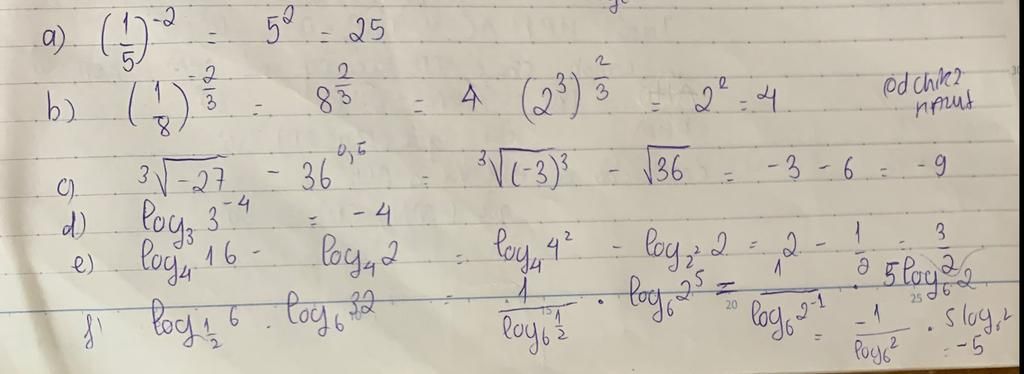 a) (1/5)^-2 = 5^2 = 25
b) (1/8)^-2/3 = 8^2/3 = 4 (2^3)^2/3 = 2^2 = 4
c) ³√-27 - 36^0,5 = ³√(-3)^3 - √36 = -3 - 6 = -9
d) log_3 3^-4 = -4
e) log_4 16 - log_4 2 = log_4 4^2 - log_2^2 2 = 2 - 1/2 = 3/2
f) log_1/2 6 · log_6 32 = 1/log_6 1/2 · log_6 2^5 = 1/log_6 2^-1 · 5 log_6 2
= -1/log_6 2 · 5 log_6 2
= -5